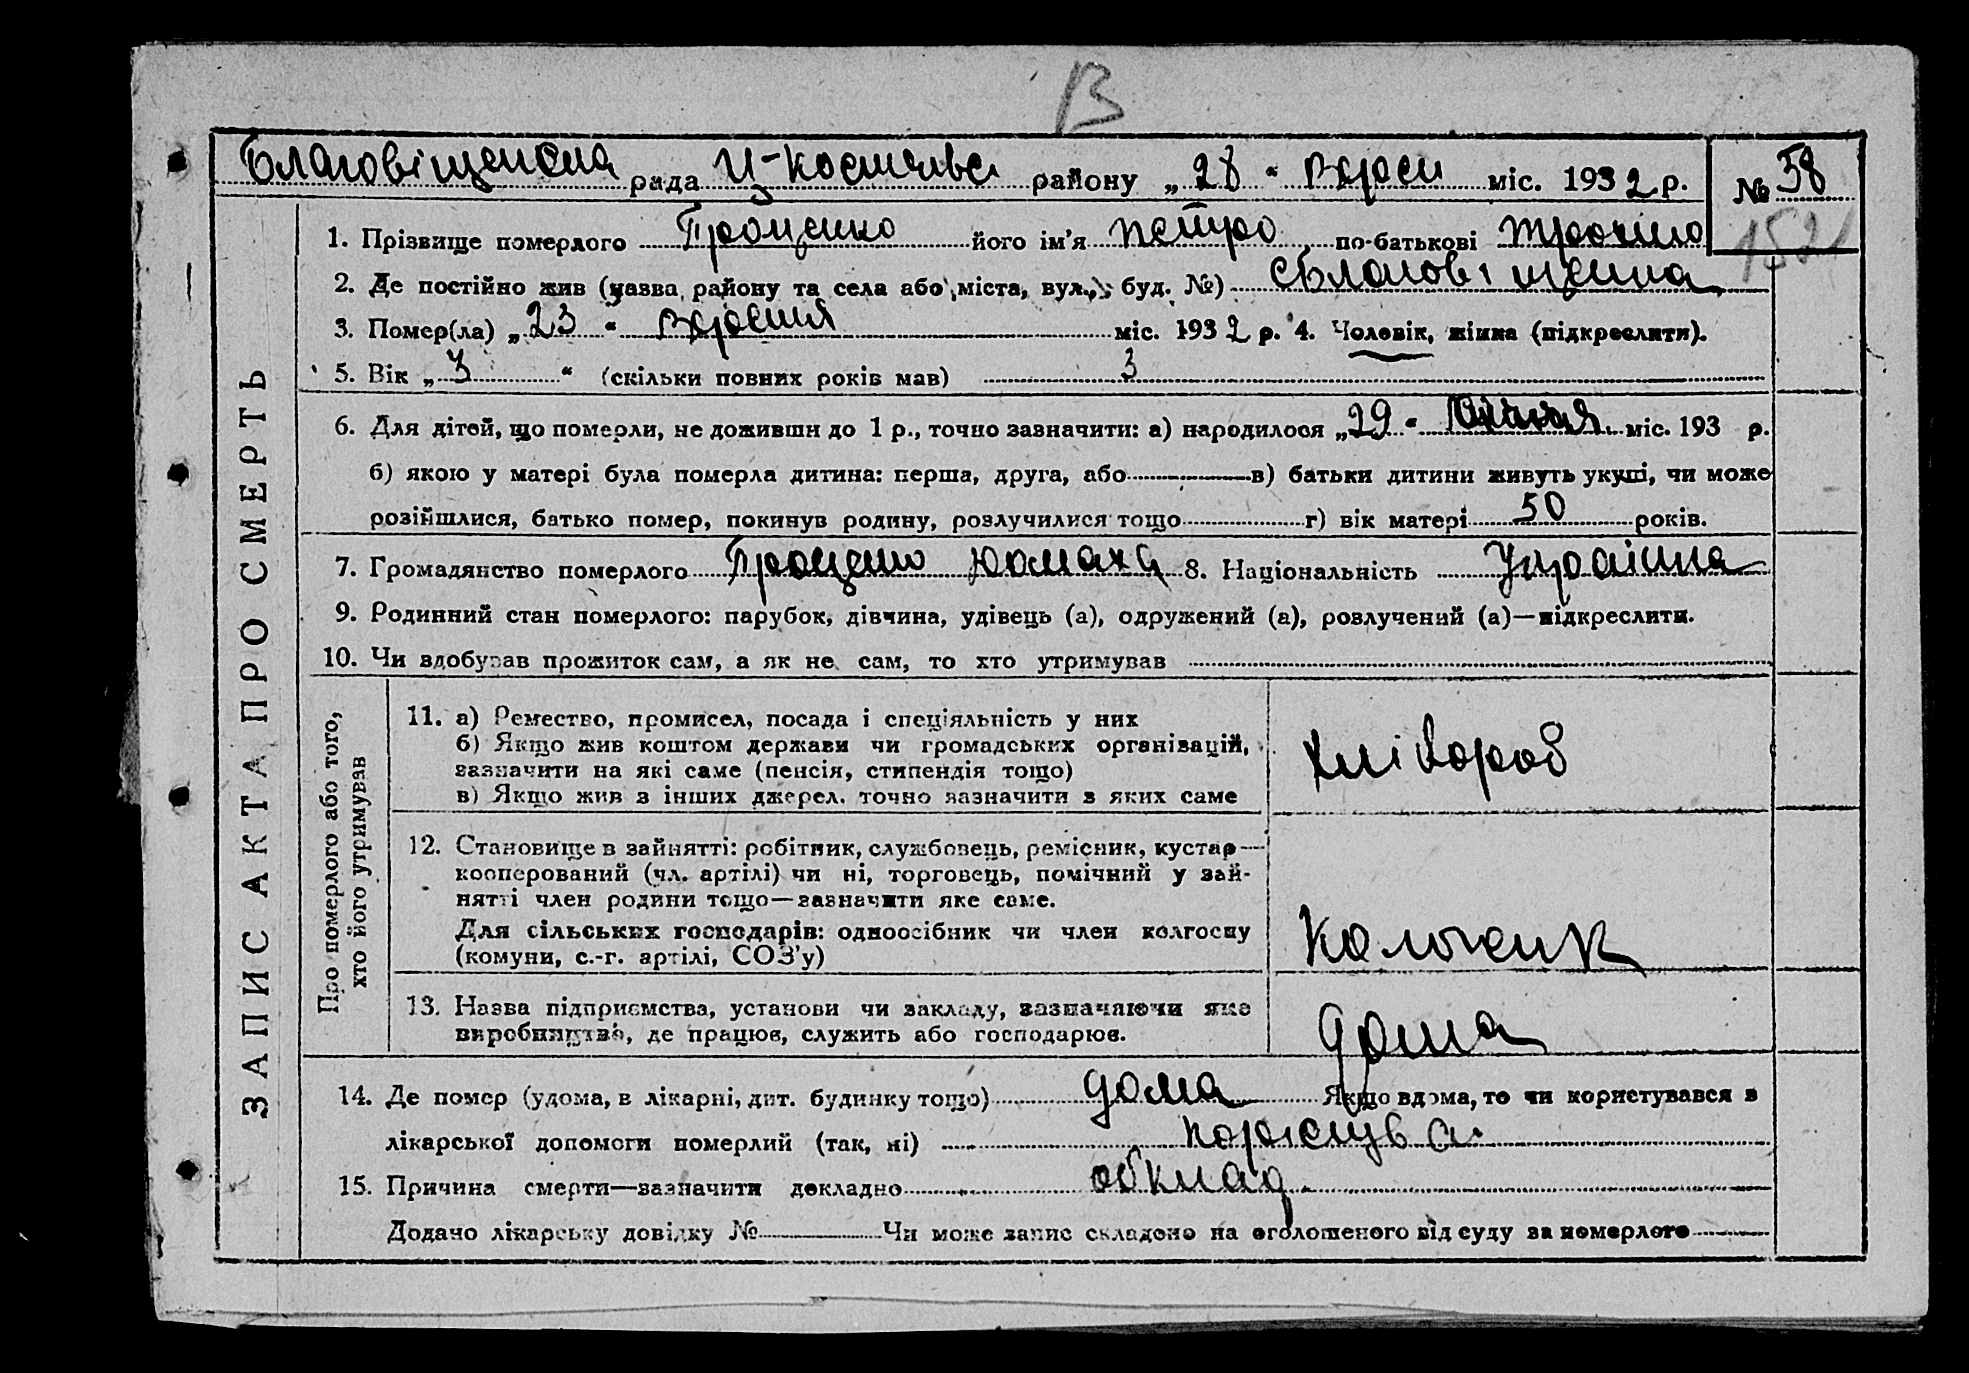 В
Благовіщенська рада Ц-Костянтів району „28“ Вересн міс. 1932 р. № 58
1. Прізвище померлого Проценко його ім'я Петро по-батькові
152
2. Де постійно жив (назва району та села або міста, вул., буд. №) с Благовіщенка
3. Помер(ла) „23“ Вересня міс. 1932 р. 4. Чоловік, жінка (підкреслити).
5. Вік „3“ (скільки повних років мав) 3
6. Для дітей, що померли, не доживши до 1 р., точно зазначити: а) народилося „29“ міс. 193 р.
б) якою у матері була померла дитина: перша, друга, або в) батьки дитини живуть укупі, чи може
розійшлися, батько помер, покинув родину, розлучилися тощо г) вік матері 50 років.
7. Громадянство померлого Проценко 8. Національність Україинка
9. Родинний стан померлого: парубок, дівчина, удівець (а), одружений (а), розлучений (а)—підкреслити.
10. Чи здобував прожиток сам, а як не сам, то хто утримував
ЗАПИС АКТА ПРО СМЕРТЬ
Про померлого або того,
хто його утримував
11. а) Ремество, промисел, посада і спеціяльність у них
б) Якщо жив коштом держави чи громадських організацій,
зазначити на які саме (пенсія, стипендія тощо)
в) Якщо жив з інших джерел, точно зазначити з яких саме
Хлібороб
12. Становище в зайнятті: робітник, службовець, ремісник, кустар—
кооперований (чл. артілі) чи ні, торговець, помічний у зай-
нятті член родини тощо—зазначити яке саме.
Для сільських господарів: одноосібник чи член колгоспу
(комуни, с.-г. артілі, СОЗ'у)
13. Назва підприємства, установи чи закладу, зазначаючи яке
виробництво, де працює, служить або господарює.
дома
14. Де помер (удома, в лікарні, дит. будинку тощо) дома Якщо вдома, то чи користувався в
лікарської допомоги померлий (так, ні)
15. Причина смерти—зазначити докладно обклад
Додано лікарську довідку № Чи може запис складено на оголошеного від суду за померлого